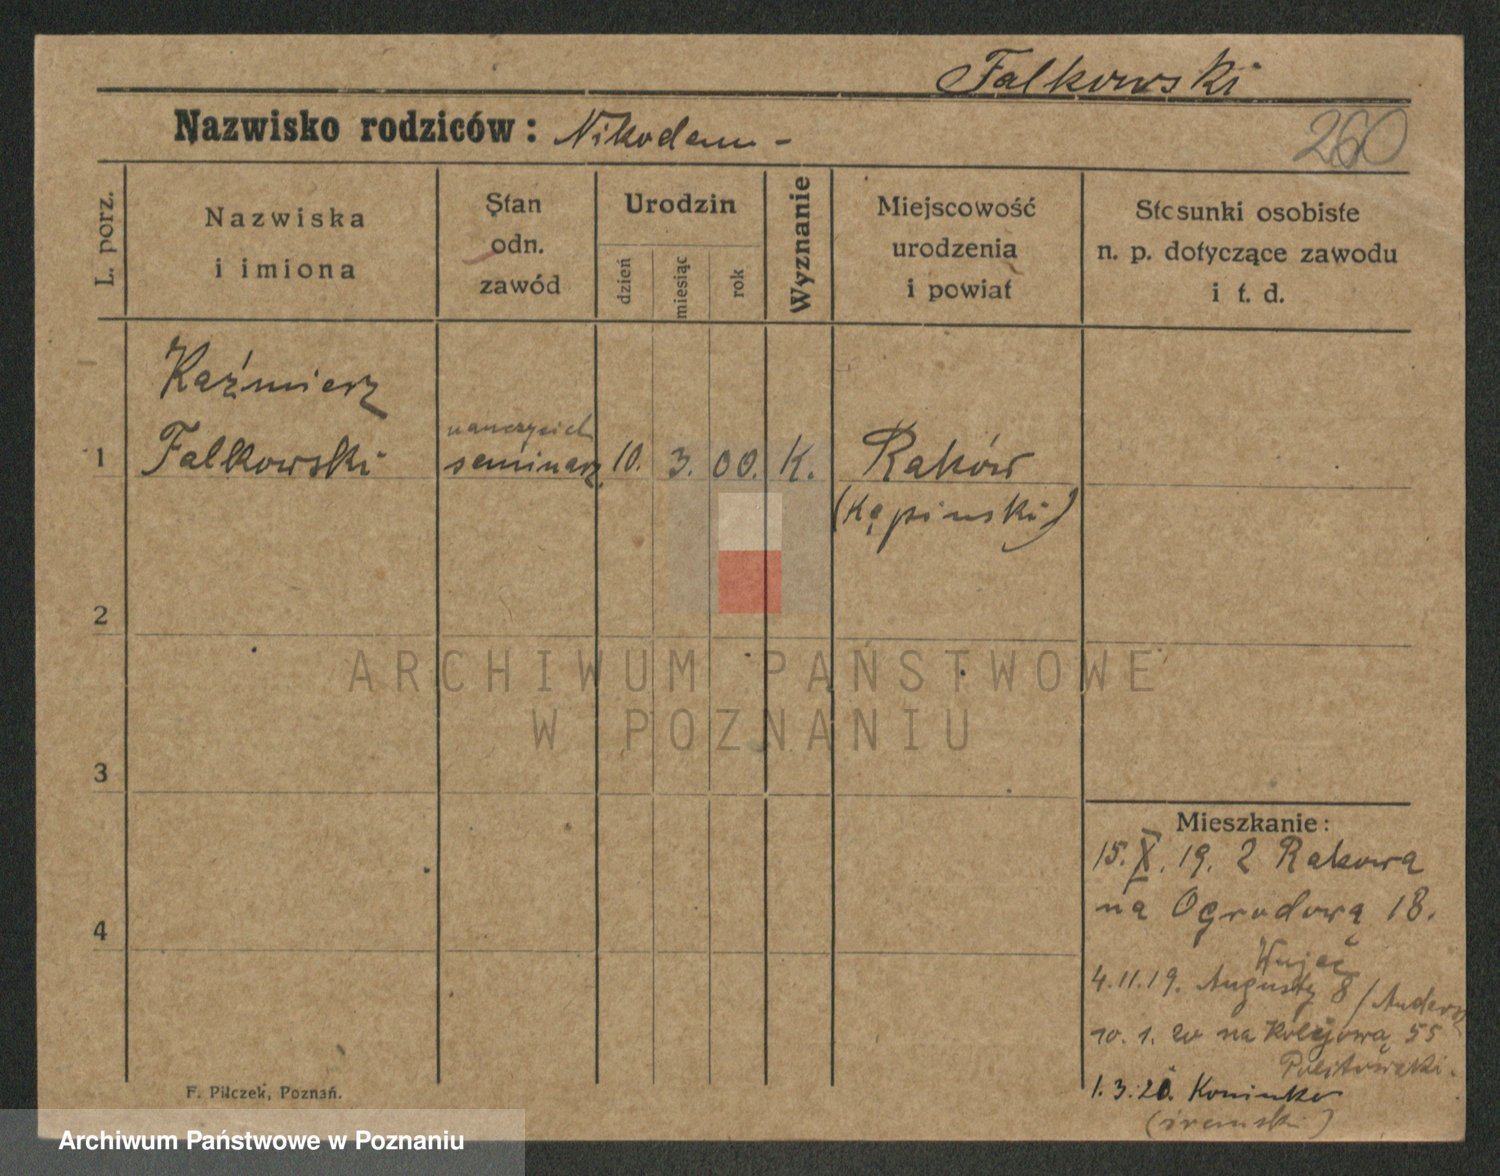 Falkowski
Nazwisko rodziców: Nikodem -
260
L. porz.
Nazwiska
i imiona
Stan
odn.
zawód
Urodzin
dzień
miesiąc
rok
Wyznanie
Miejscowość
urodzenia
i powiat
Stosunki osobiste
n. p. dotyczące zawodu
i t. d.
Kaźmierz
1 Falkowski seminarz. 10. 3. 00. K. Raków
(Kępiński)
2
3
4
ARCHIWUM PAŃSTWOWE
W POZNANIU
Mieszkanie:
15. X. 19. z Rakowa
na Ogrodową 18.
4.11.19. Augusty 8
10. 1. 20 na Kolejową 55
1. 3. 20. Koninko
(śremski)
F. Pilczek, Poznań.
Archiwum Państwowe w Poznaniu